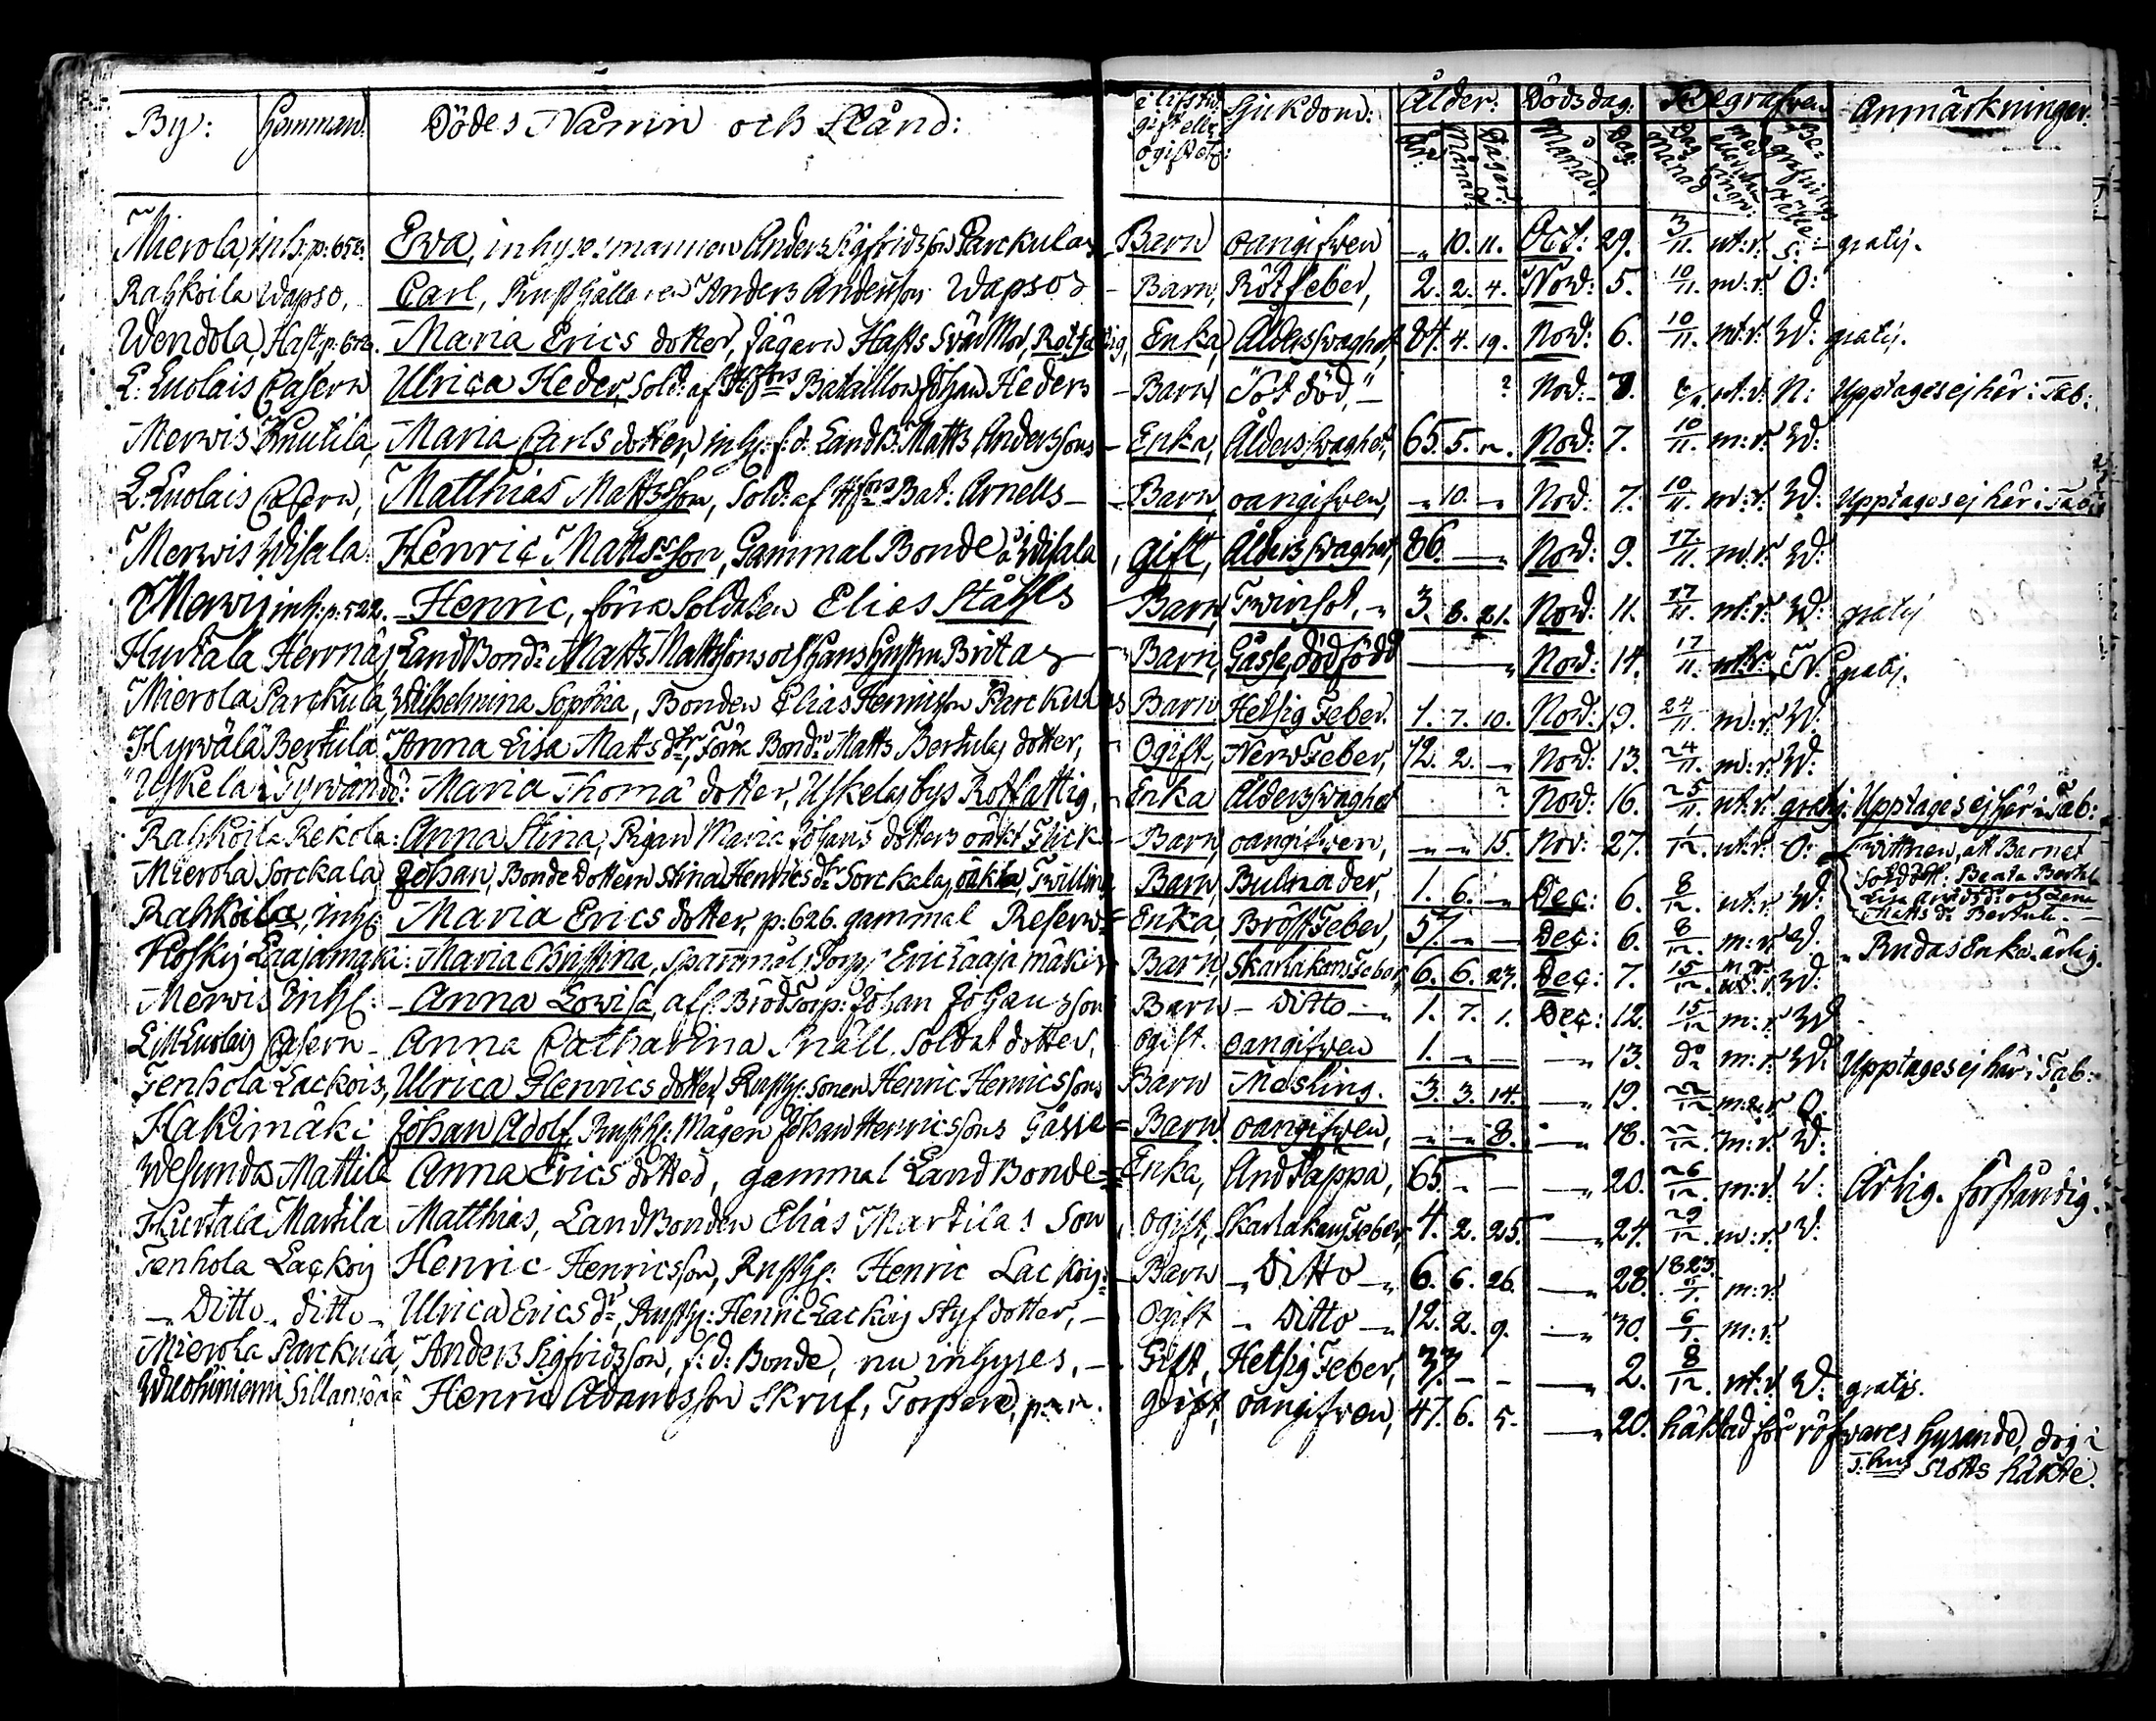 By: Hemman. Dödes Namn och Stånd: i lifstid gift eller ogift etc: Sjukdom: Ålder: Dödsdag: Begrafven Anmärkningar.
År. Månad. Dagar. Månad. Dag. Dag Månad
Mierola, inh: p: 658. Eva, inhyses mannen Anders Sigfridsson Parckulas Barn oangifven „ 10. 11. Oct: 29. 3/11. ut: r. S: gratis.
Rahkoila Wapso, Carl, Rusthållaren Anders Andersson Wapsos - Barn, Rötfeber, 2. 2. 4. Nov: 5. 10/11. m: r. O:
Wendola, Haft p: 602. Maria Erics dotter, Jägarn Hafts Svär Mor, Rotfattig, Enka, Ålders svaghet, 84. 4. 19. Nov: 6. 10/11. ut: r. W: gratis.
L: Luolais Casern Ulrica Heder, Sold: af H:fors Bataillon Johan Heders - Barn, "Sot död," - ? Nov: 7. ut: r. N: Upptages ej här i Tab:
Merwis Knutila, Maria Carls dotter, inh: f: d: Landb: Matts Anderssons - Enka, Ålders svaghet, 65. 5. „. Nov: 7. 10/11. m: r. W:
L: Luolais Casern, Matthias Mattsson, Sold: af H:fors Bat: Arnells - Barn, oangifven, „ 10. „ Nov: 7. 10/11. m: r. W: Upptages ej här i Tab:
Merwis Wisala. Henric Mattsson, Gammal Bonde å Wisala, gift, Ålders svaghet, 86. — „ Nov: 9. 17/11. m: r. W:
Merwis inh: p: 522. Henric, förra Soldaten Elias Ståhls Barn, Twinsot, „ 3. 8. 21. Nov: 11. 17/11. ut: r. W: gratis
Hurtala Hernäs Land Bond: Matts Mattssons och hans hustru Britas - Barn, Gåsse, dödfödd — „ Nov: 14. 17/11. ut: r. N. gratis.
Mierola Parckula, Wilhelmina Sophia, Bonden Elias Henricsson Parckulas Barn Hetsig Feber. 1. 7. 10. Nov: 19. 24/11. m: r. W:
Hyrvälä Bertula Anna Lisa Matts dtr, Förra Bond: Matts Bertulas dotter, - Ogift, Nerv Feber, 12. 2. „ Nov: 13. 24/11. m: r. W:
Uskela i Tyrwändö: Maria Thomä dotter, Uskelas bys Rotfattig, - Enka Ålders svaghet ? Nov: 16. 25/11. ut: r. gratis. Upptages ej här i Tab:
Rahkoila Rekola: Anna Stina, Pigan Maria Johans dotters oäkt Flick - Barn, oangifven, „ „ 15. Nov: 27. 1/12. ut: r. O: Wittnen, att Barnet
Mierola Sorckala, Johan, Bonde Dottern Stina Henrics dtr Sorckalas, oäkta, Twilling Barn, Bulnader, 1. 6. „ Dec: 6. 8/12. ut: r. W: Beata Bertul
Lisa Arvids d: och Lena
Matts d: Bertula. -
Rahkoila, inh: Maria Erics dotter, p: 626. gammal Reserv= Enka, Bröst Feber, 57. „ — Dec: 6. 8/12. m: r. W. Enka. ärlig.
Hoskis Laajamäki: Maria Christina, Torp: Eric Laajamäkis Barn, Skarlakans Feber, 6. 6. 27. Dec: 7. 15/12. W:
Merwis Inhs: - Anna Lowisa, afl: Bröd Torp: Johan Johanssons Barn - Ditto — „ 1. 7. 1. Dec: 12. 15/12 m: r. W
Lill Luolais Casern - Anna Catharina Snäll, Soldat dotter, Ogift. oangifven 1. „ — — „ 13. do m: r. W. Upptages ej här i Tab:
Tenhola Lackois, Ulrica Henrics dotter, Rusth: sonen Henric Henricssons Barn Mesling. 3. 3. 14. — „ 19. 22/12 m: r. O
Hakimäki Johan Adolf, Rusth: Mågen Johan Henricssons Gåsse = Barn oangifven, „ „ 8. — „ 18. 22/12. m: r. W:
Wesunda Mattila Anna Erics dotter, gammal Land Bonde = Enka, Andtäppa, 65. - — — „ 20. 26/12. m: r. W: Ärlig. förståndig.
Hurtala Martila Matthias, Land Bonden Elias Martilas Son, Ogift, Skarlakans Feber, 4. 2. 25. — „ 24. 29/12. m: r. W:
Tenhola Lackois Henric Henricsson, Rusth: Henric Lackois: Barn „ Ditto „ 6. 6. 26. — „ 28. 1823. 6/1. m: r.
„ Ditto „ ditto „ Ulrica Erics dr, Rusth: Henric Lackois styfdotter, - Ogift „ Ditto — „ 12. 2. 9. — „ 30. 6/1. m: r.
Mierola Parckula, Anders Sigfridsson, f: d: Bonde, nu inhyses, - Gift, Hetsig Feber, 37. - - — „ 2. 8/12. ut: r. W: gratis.
Wuohiniemi Sillanpää Henric Adamsson Skruf, Torpare, Gift, oangifven, 47. 6. 5. — „ 20. häktad för röfvares hysande, dog i
T:hus Slotts häkte.